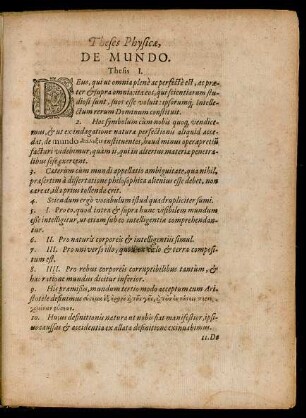 Theses Physicæ,
DE MUNDO.
Thesis I.
DEus, qui ut omnia plenè ac perfectè est, ac præ-
ter & supra omnia: ita eos, qui scientiarum stu-
diosi sunt, suos esse voluit: ipsorumq; intelle-
ctum rerum Dominum constituit.
2. Hoc symbolum cum nobis quoq; vendice-
mus, & ut ex indagatione naturæ perfectionis aliquid acce-
dat, de mundo instituentes, haud minus operæpretiū
facturi videbimur, quàm ii, qui in alterius materia penetra-
libus sese exercent.
3. Cæterum cum mundi appellatio ambiguitate, quæ nihil,
præsertim à dissertatione philosophica alienius esse debet, non
careat, illa primò tollenda erit.
4. Sciendum ergo vocabulum istud quadrupliciter sumi.
5. I. Pro eo, quod intra & supra hunc visibilem mundum
esse intelligitur, ut etiam subjecta intelligentia comprehendan-
tur.
6. II. Pro naturis corporeis & intelligentiis simul.
7. III. Pro universo illo, quod ex cœlo & terra compositum
est.
8. IIII. Pro rebus corporeis corruptibilibus tantùm, & 
hac ratione mundus dicitur inferior.
9. His præmissis, mundum tertio modo acceptum cum Ari-
stotele definimus
10. Hujus definitionis natura ut nobis fiat manifestior, ipsi-
us caussas & accidentia ex allata definitione eruemus.
11. De